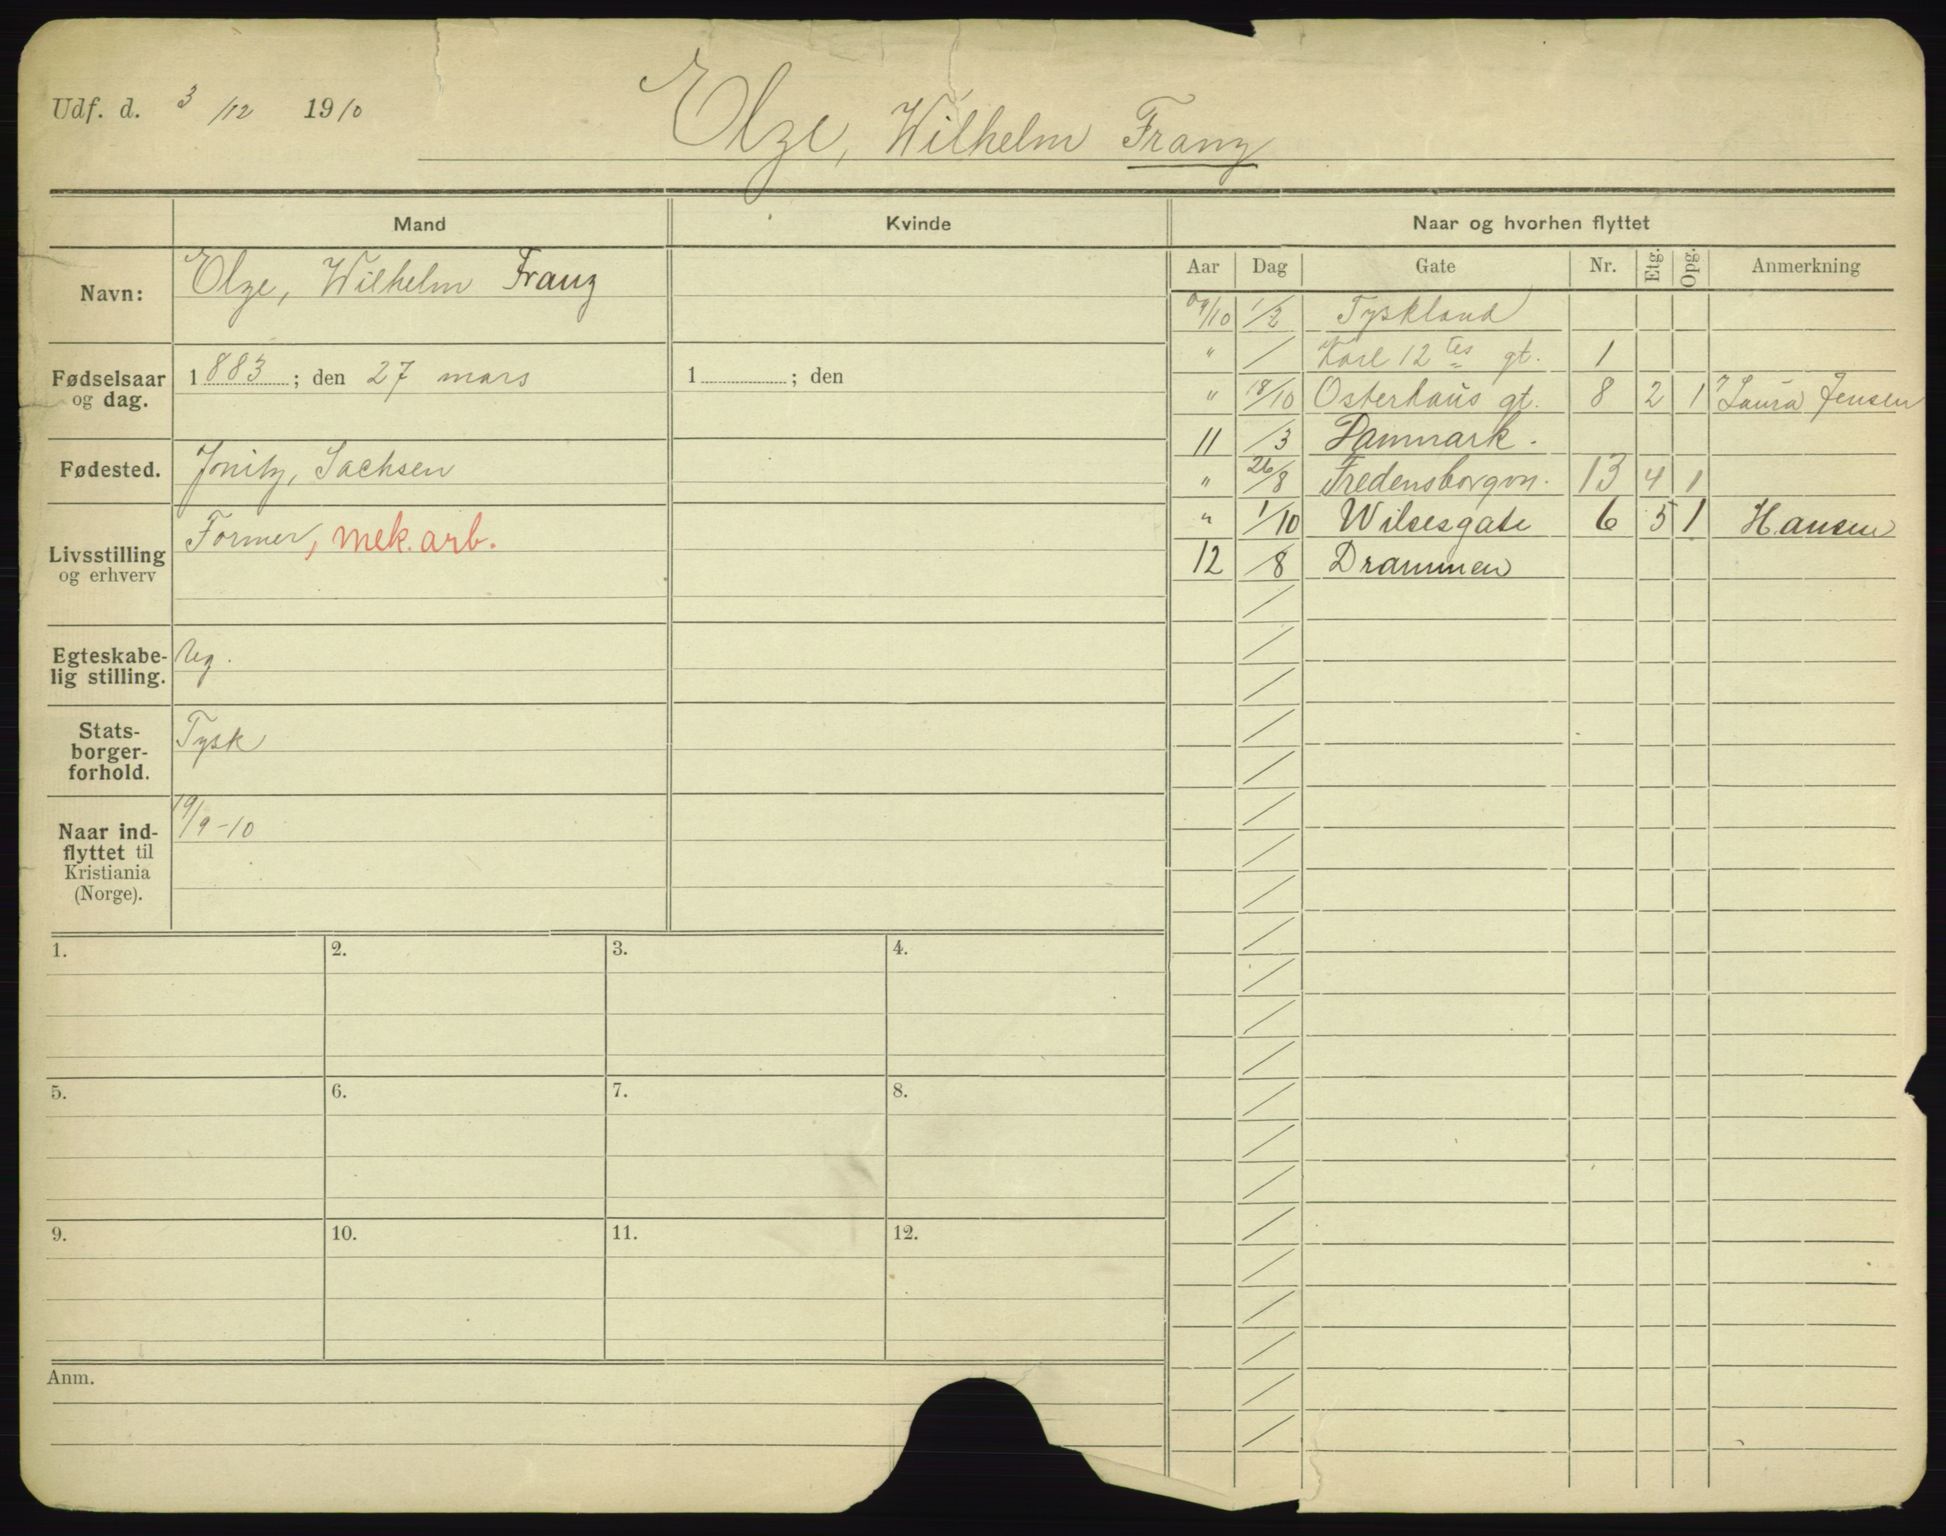 Udf. d. 3/12 1910
Elze, Wilhelm Franz
Mand Kvinde Naar og hvorhen flyttet
Aar Dag Gate Nr. Etg. Opg. Anmerkning
Navn: Elze, Wilhelm Franz
Fødselsaar og dag. 1883; den 27 mars 1 ; den
Fødested. Jonitz, Sachsen
Livsstilling og erhverv Former, mek. arb.
Egteskabe-
lig stilling. Ug.
Stats-
borger-
forhold. Tysk
Naar ind-
flyttet til
Kristiania
(Norge). 19/9-10
09/10 1/2 Tyskland
" / Karl 12 tes gt. 1
" 18/10 Osterhaus gt. 8 2 1 Laura Jensen
11 /3 Danmark.
" 26/8 Fredensborgvn. 13 4 1
" 1/10 Wilsesgate 6 5 1 Hansen
12 /8 Drammen
1. 2. 3. 4.
5. 6. 7. 8.
9. 10. 11. 12.
Anm.